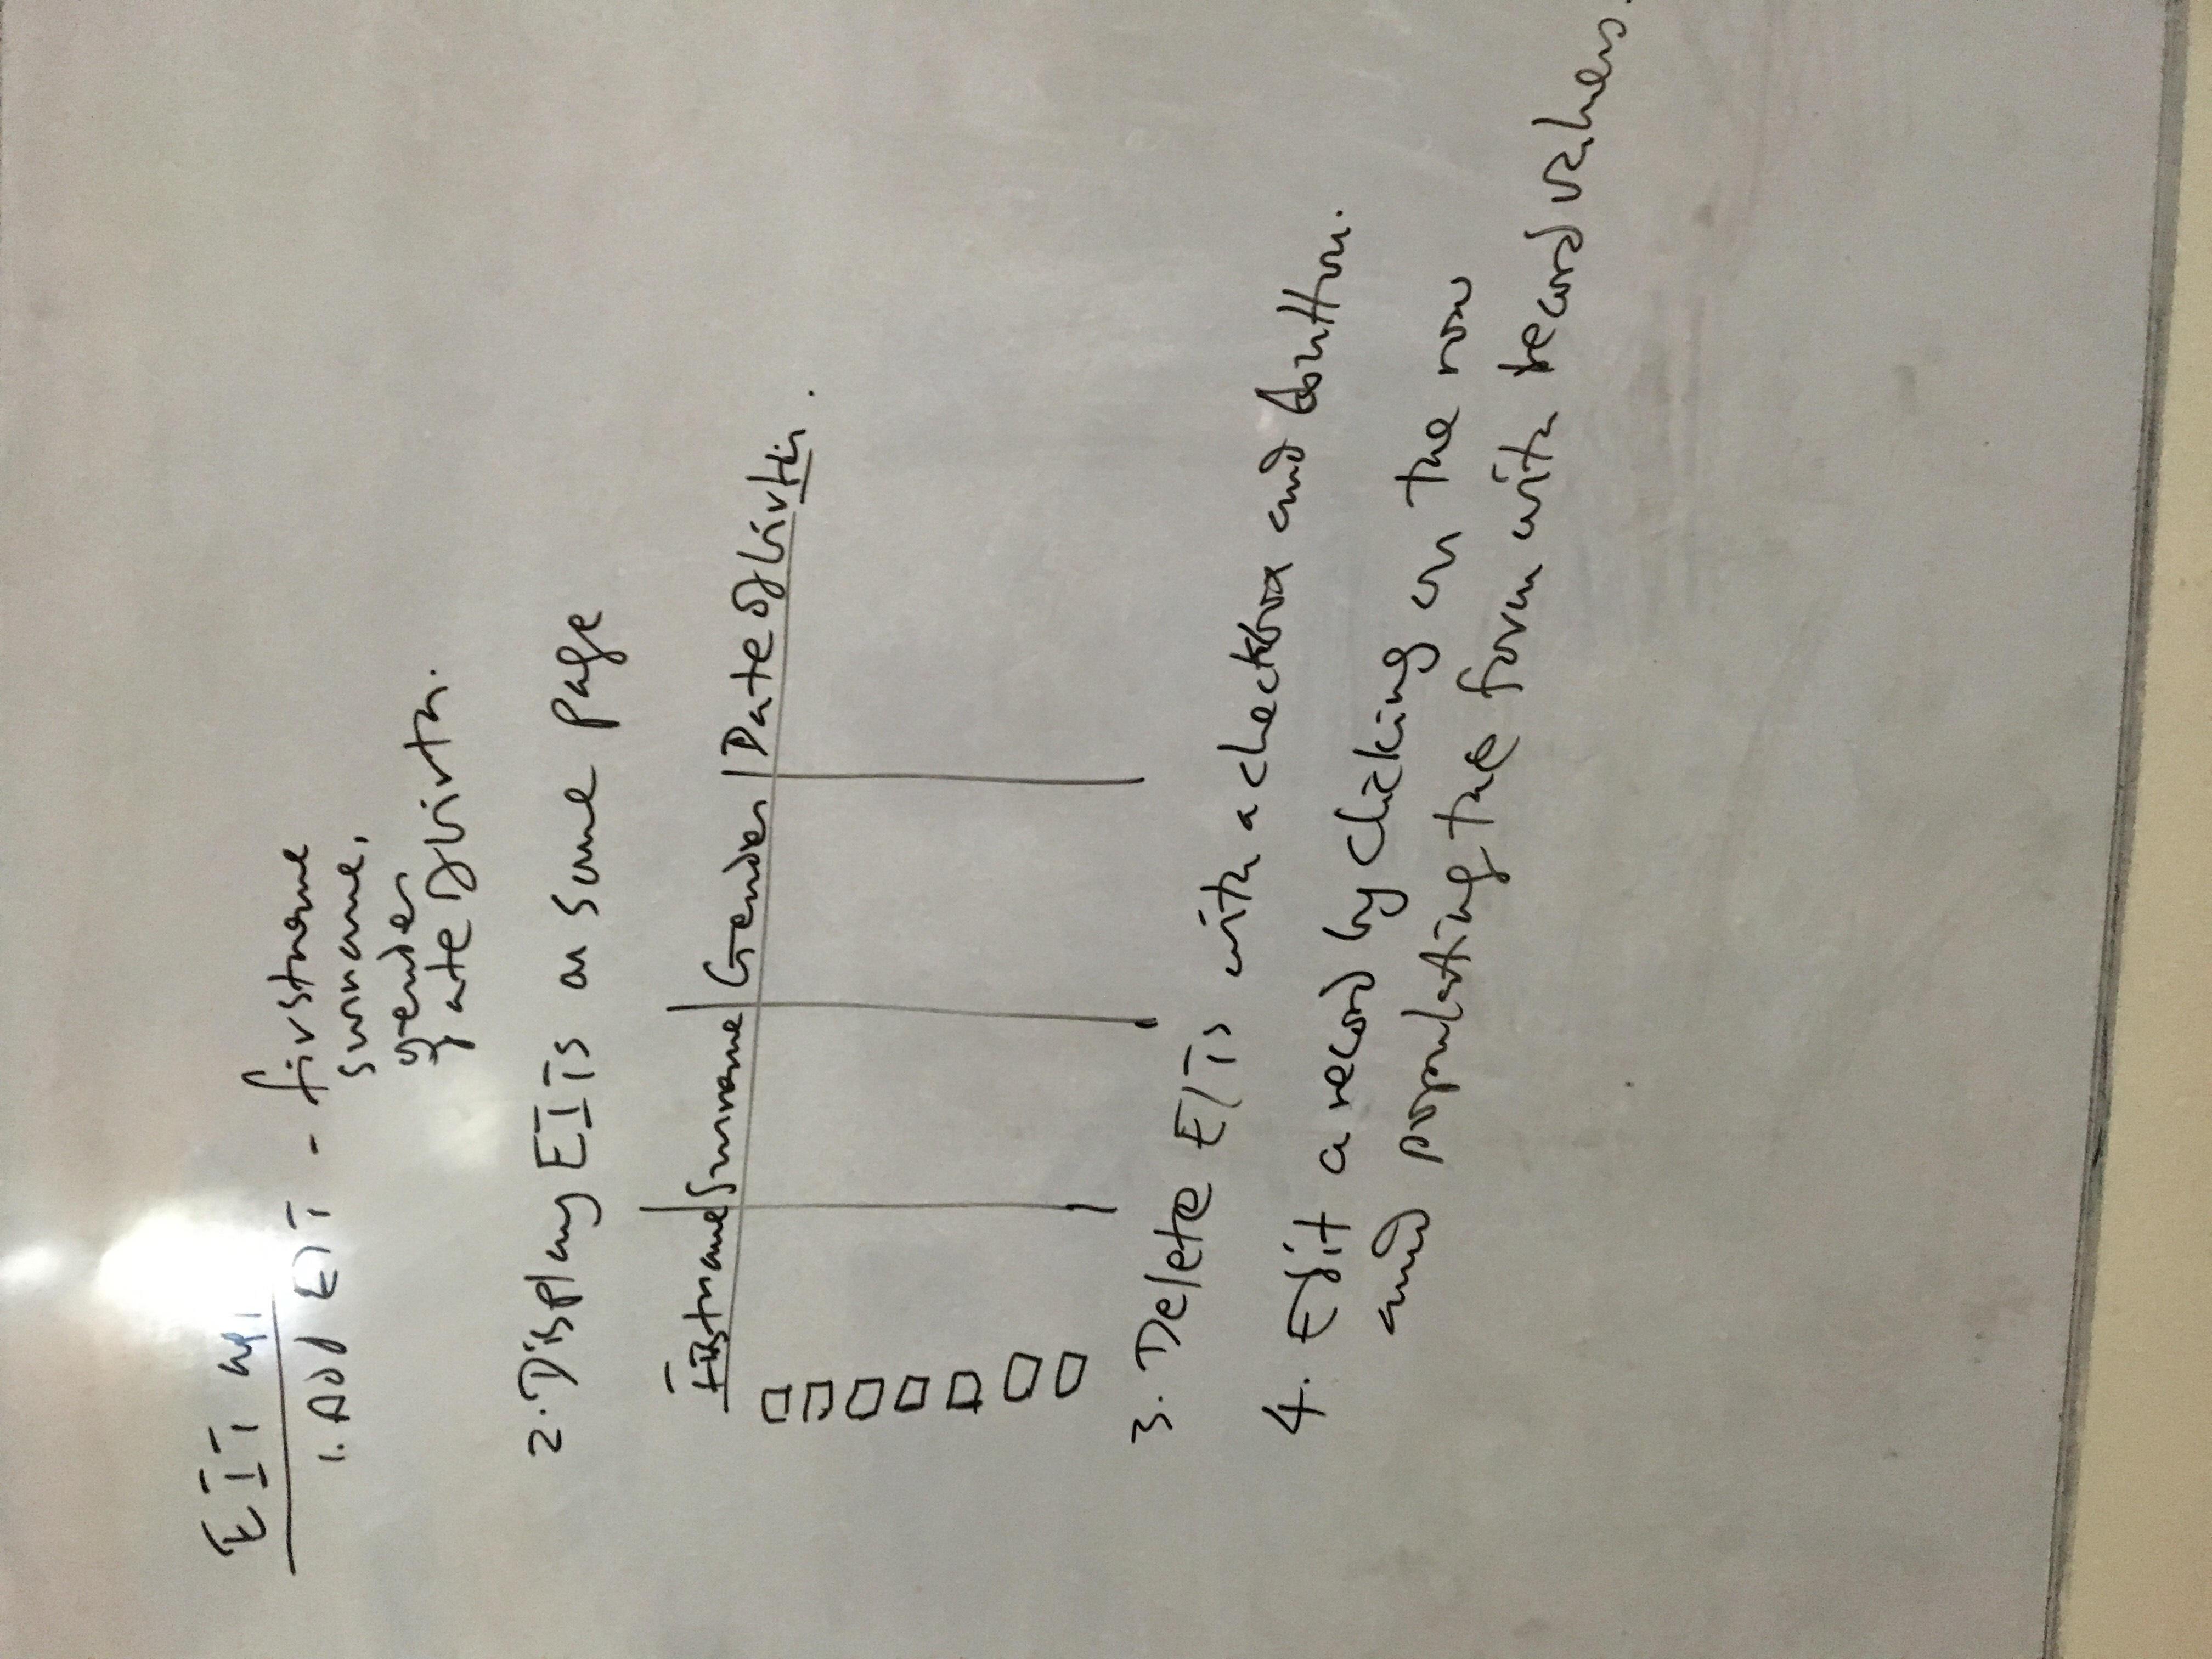 EIT
1. Add EIT - firstname
surname,
gender
date of birth.
2. Display EITs on same page
Firstname Surname Gender Date of birth.
3. Delete EITs with a checkbox and button.
4. Edit a record by clicking on the row
and populating the form with record values.